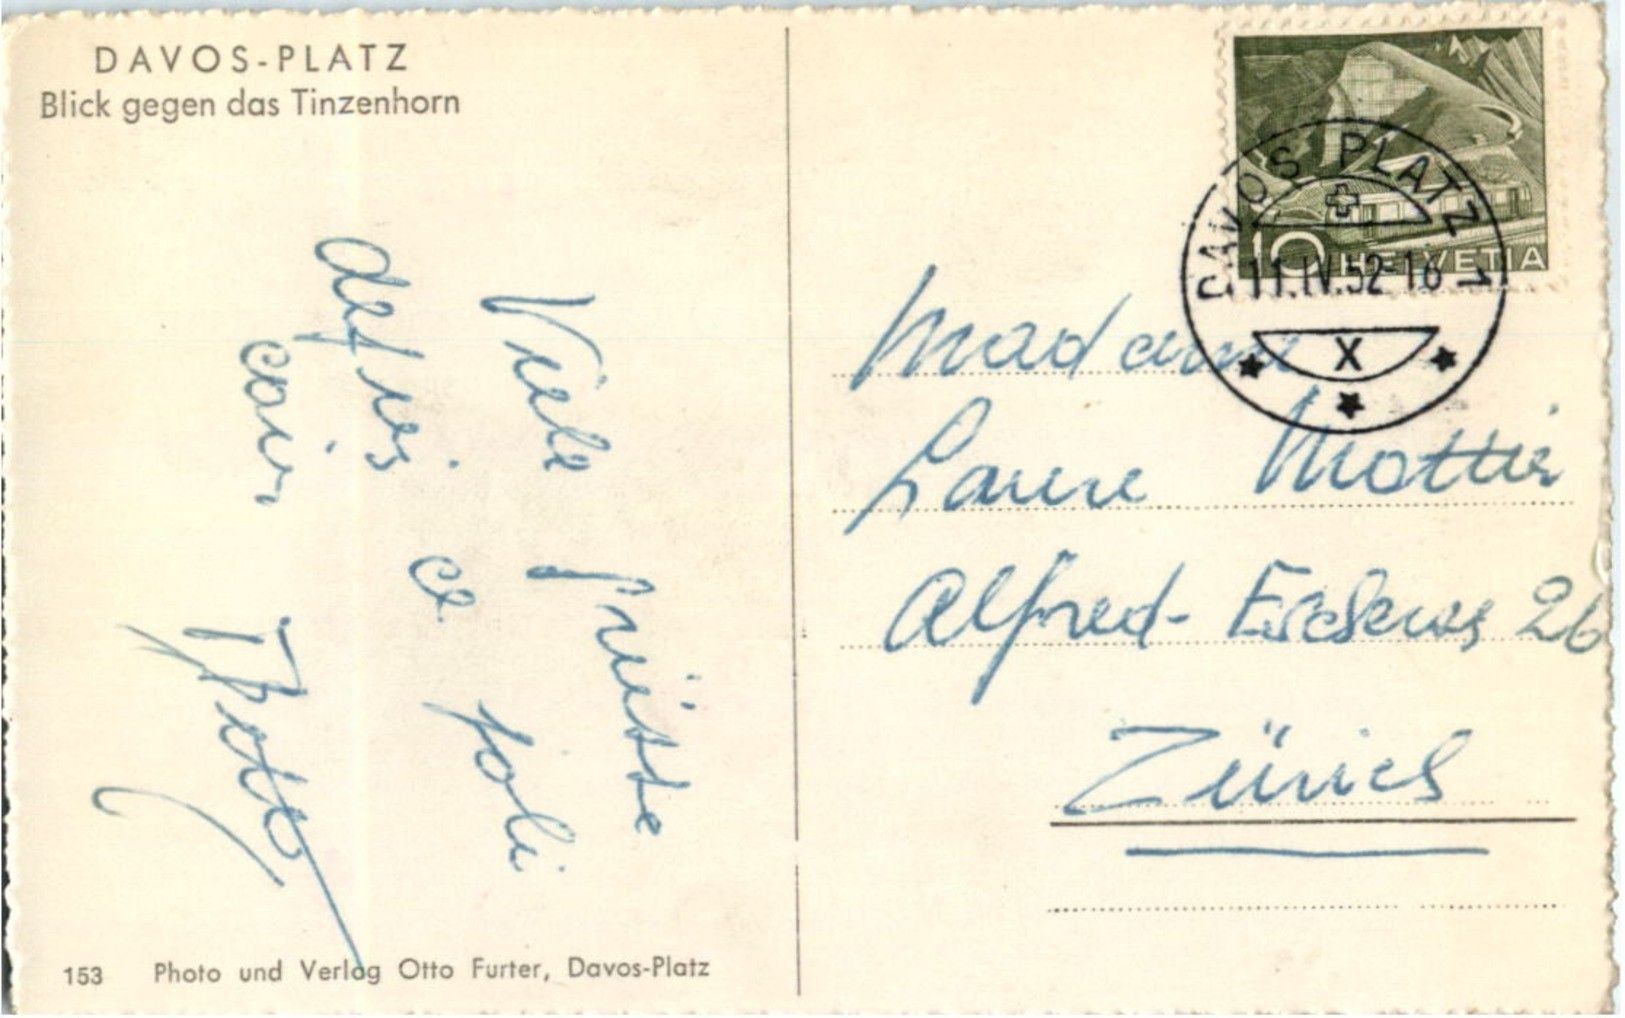 DAVOS-PLATZ
Blick gegen das Tinzenhorn
Viele Grüsse
depuis ce joli
coin
153 Photo und Verlag Otto Furter, Davos-Platz
10 HELVETIA
DAVOS PLATZ 1
11.IV.52-16
X
Madame
Laure Mottier
Alfred-Escherstr 26
Zürich